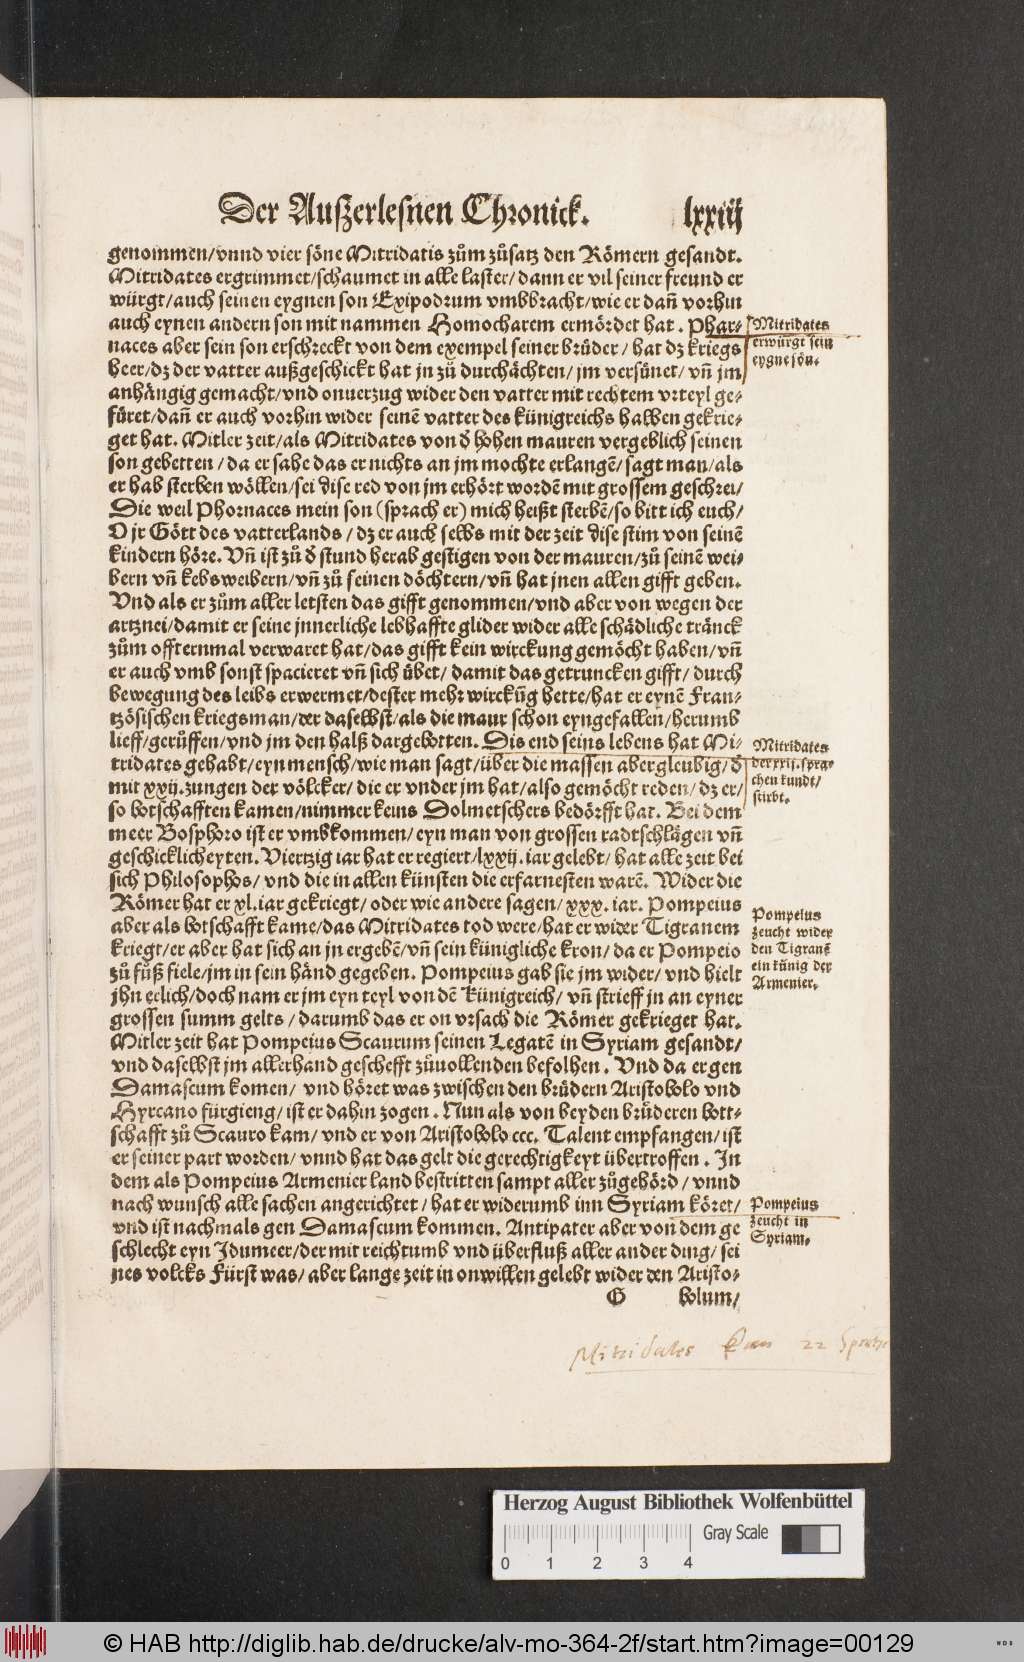 Der Außerlesnen Chronick. lxxiij
genommen/vnnd vier söne Mitridatis zům zůsatz den Römern gesandt.
Mitridates ergrimmet/schaumet in alle laster/dann er vil seiner freund er
würgt/auch seinen eygnen son Exipodrum vmbbracht/wie er dañ vorhin
auch eynen andern son mit nammen Homocharem ermördet hat. Phar-
naces aber sein son erschreckt von dem exempel seiner brůder/hat dz kriegs
heer/dz der vatter außgeschickt hat jn zů durchächten/jm versůnet/vñ jm
anhängig gemacht/vnd onuerzug wider den vatter mit rechtem vrteyl ge-
füret/dañ er auch vorhin wider seinẽ vatter des künigreichs halben gekrie-
get hat. Mitler zeit/als Mitridates von d̕ hohen mauren vergeblich seinen
son gebetten/da er sahe das er nichts an jm mochte erlangẽ/sagt man/als
er hab sterben wöllen/sei dise red von jm erhört wordẽ mit grossem geschrei/
Die weil Phornaces mein son (sprach er) mich heißt sterbẽ/so bitt ich euch/
O jr Gött des vatterlands/dz er auch selbs mit der zeit dise stim von seinẽ
kindern höre. Vñ ist zů d̕ stund herab gestigen von der mauren/zů seinẽ wei-
bern vñ kebsweibern/vñ zů seinen döchtern/vñ hat jnen allen gifft geben.
Vnd als er zům aller letsten das gifft genommen/vnd aber von wegen der
artznei/damit er seine jnnerliche lebhaffte glider wider alle schädliche tränck
zům offternmal verwaret hat/das gifft kein wirckung gemöcht haben/vñ
er auch vmb sonst spacieret vñ sich übet/damit das getruncken gifft/durch
bewegung des leibs erwermet/dester mehr wirckũg hette/hat er eynẽ Fran-
tzösischen kriegsman/der daselbst/als die maur schon eyngefallen/herumb
lieff/gerůffen/vnd jm den halß dargebotten. Dis end seins lebens hat Mi-
tridates gehabt/eyn mensch/wie man sagt/über die massen abergleubig/d̕
mit xxij.zungen der völcker/die er vnder jm hat/also gemöcht reden/dz er/
so botschafften kamen/nimmer keins Dolmetschers bedörfft hat. Bei dem
meer Bosphoro ist er vmbkommen/eyn man von grossen radtschlägen vñ
geschicklicheyten. Viertzig iar hat er regiert/lxxij.iar gelebt/hat alle zeit bei
sich Philosophos/vnd die in allen künsten die erfarnesten warẽ. Wider die
Römer hat er xl.iar gekriegt/oder wie andere sagen/xxx.iar. Pompeius
aber als botschafft kame/das Mitridates tod were/hat er wider Tigranem
kriegt/er aber hat sich an jn ergebẽ/vñ sein künigliche kron/da er Pompeio
zů fůß fiele/jm in sein händ gegeben. Pompeius gab sie jm wider/vnd hielt
jhn erlich/doch nam er jm eyn teyl von dẽ Künigreich/vñ strieff jn an eyner
grossen summ gelts/darumb das er on vrsach die Römer gekrieget hat.
Mitler zeit hat Pompeius Scaurum seinen Legatẽ in Syriam gesandt/
vnd daselbst jm allerhand geschefft zůuollenden befolhen. Vnd da er gen
Damascum komen/vnd höret was zwischen den brüdern Aristobolo vnd
Hyrcano fürgieng/ist er dahin zogen. Nun als von beyden brüderen bott-
schafft zů Scauro kam/vnd er von Aristobolo ccc. Talent empfangen/ist
er seiner part worden/vnnd hat das gelt die gerechtigkeyt übertroffen. In
dem als Pompeius Armenier land bestritten sampt aller zůgehörd/vnnd
nach wunsch alle sachen angerichtet/hat er widerumb inn Syriam köret/
vnd ist nachmals gen Damascum kommen. Antipater aber von dem ge
schlecht eyn Idumeer/der mit reichtumb vnd überfluß aller ander ding/sei
nes volcks Fürst was/aber lange zeit in onwillen gelebt wider den Aristo-
G bolum/
Mitridates
erwürgt sein
eygne sön.
Mitridates
der xxij.spra-
chen kundt/
stirbt.
Pompeius
zeucht wider
den Tigranẽ
ein künig der
Armenier.
Pompeius
zeucht in
Syriam.
Mitridates kan 22 Sprache
Herzog August Bibliothek Wolfenbüttel
Gray Scale
0 1 2 3 4
© HAB http://diglib.hab.de/drucke/alv-mo-364-2f/start.htm?image=00129